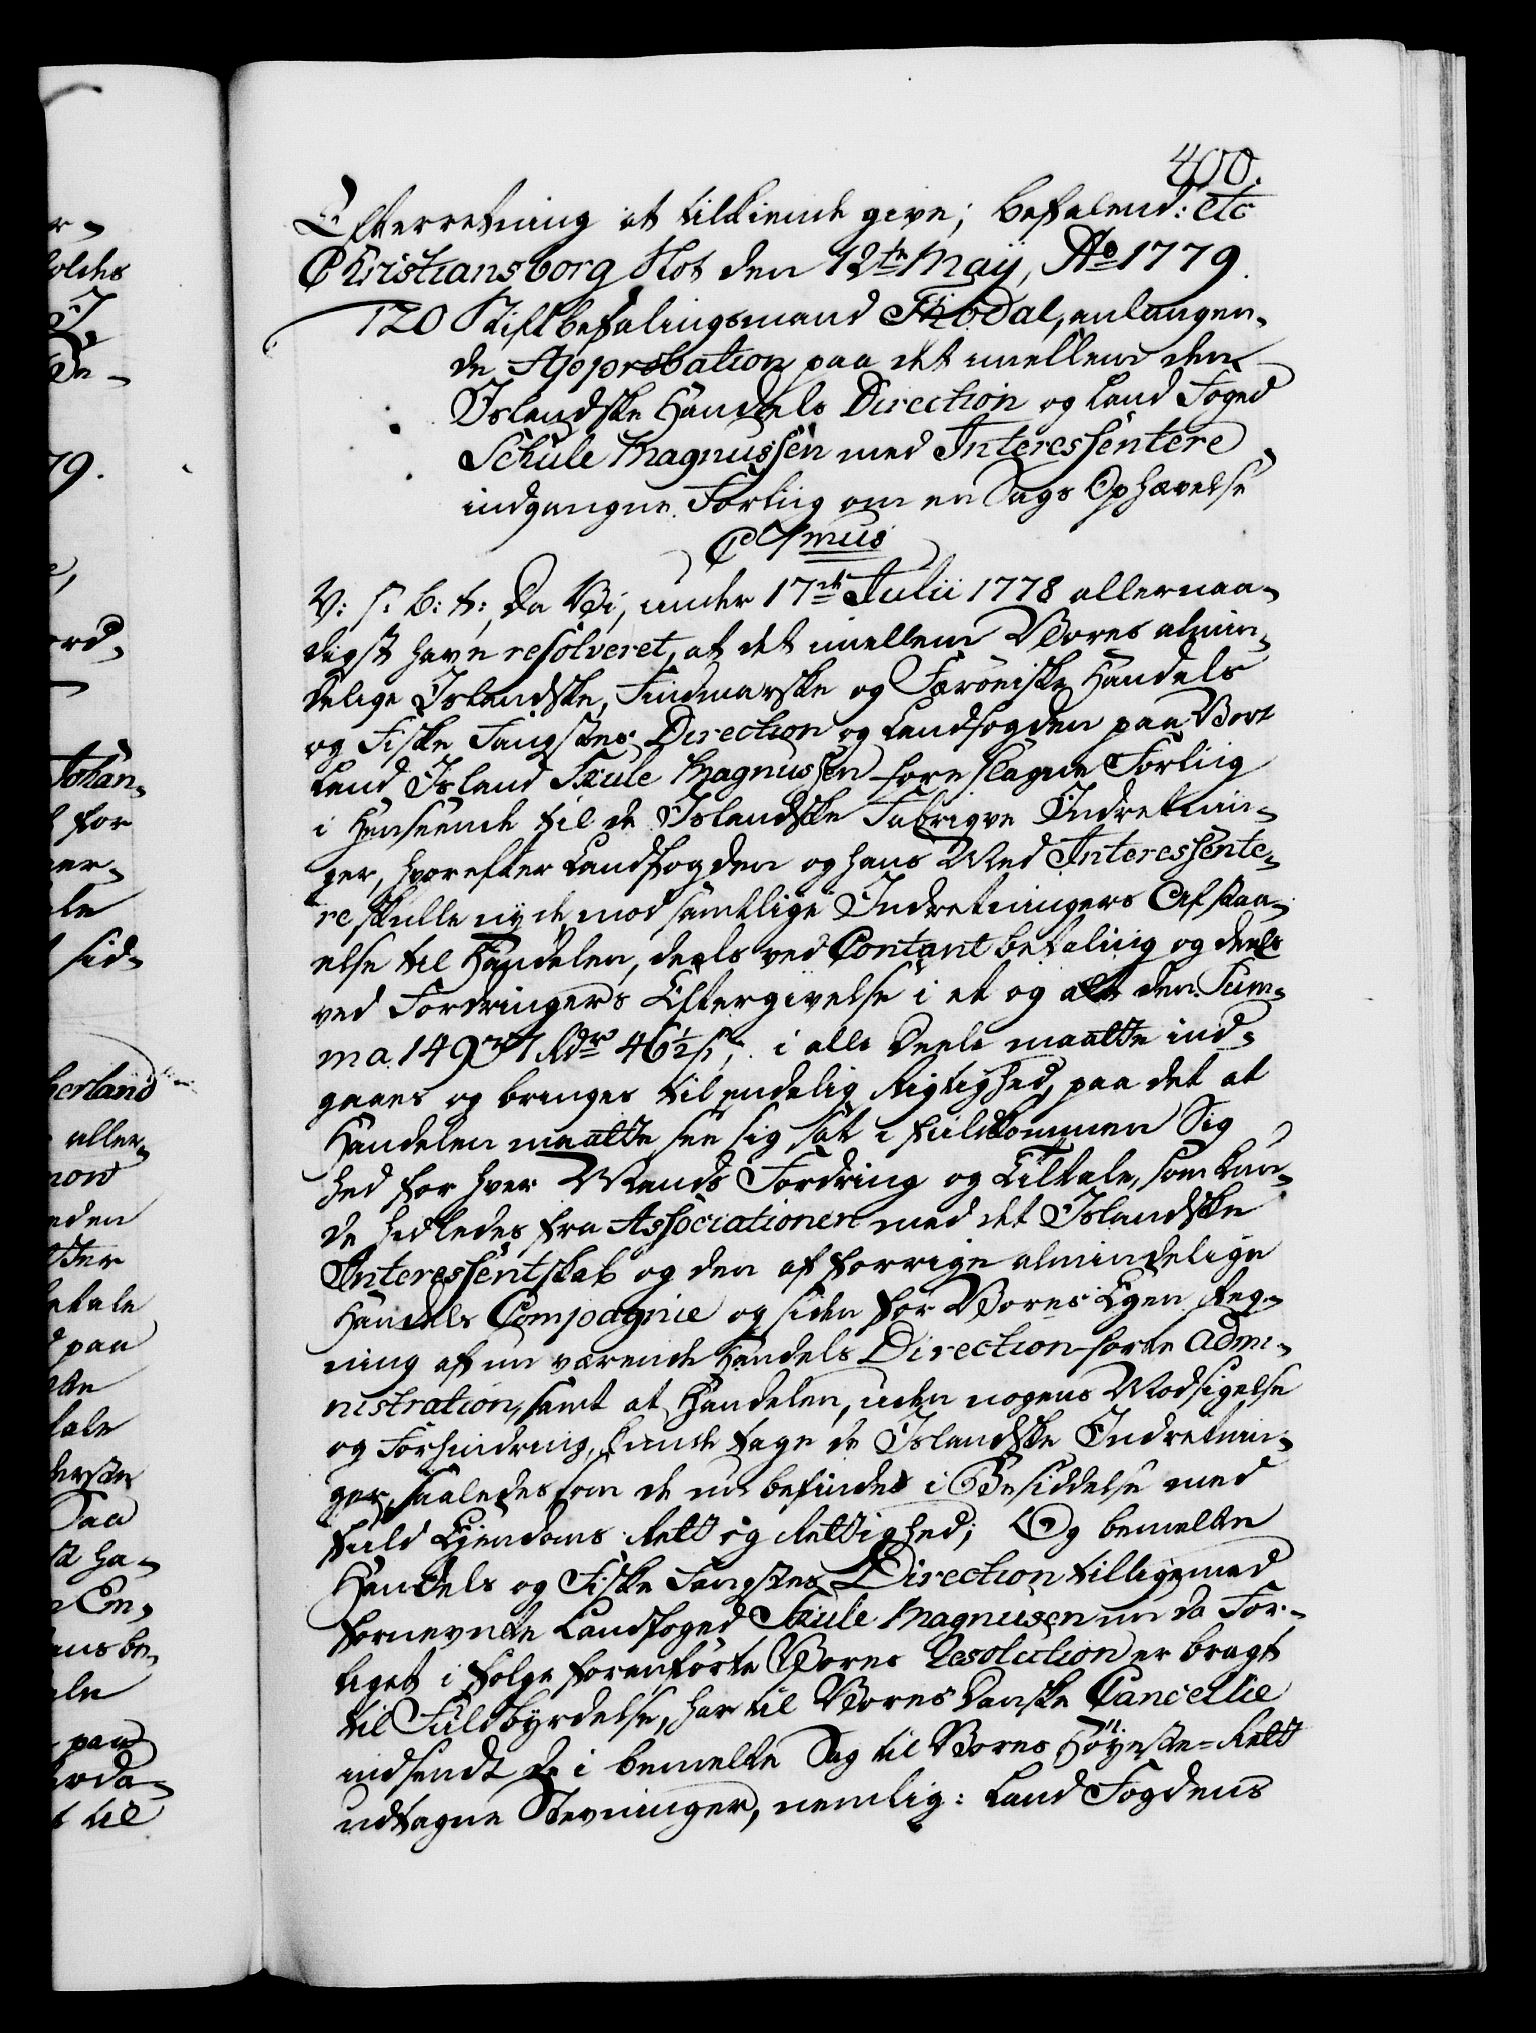 400.
Efterretning at tilkiende give; befalend: etc
Christiansborg Slot den 12te Maÿ, Ao 1779.
120 Stiftbefalingsmand Thodal, anlangen-
de Approbation paa det imellem den
Islandske Handels Direction og Land Foged
Schule Magnussen med Interessentere
indgangne Forliig om en Sags Ophævelse
C 7mus
V: S: B: t:, Da Vi, under 17de Julii 1778 allernaa-
digst have resolveret, at det imellem Vores almin-
delige Islandske, Findmarske og Færöeiske Handels
og Fiske Fangstes Direction og Landfogden paa Vort
Land Island Skule Magnussen foreslagne Forliig
i Henseende til de Islandske Fabriqve Indretnin-
ger, hvorefter Landfogden og hans Med Interessente-
re skulle nyde mod samtlige Indretningers Afstaa-
else til Handelen, deels ved Contant betaling og deels
ved Fordringers Eftergivelse i et og alt den Sum-
ma 149 Rdr 46½ s; i alle Deele maatte ind-
gaaes og bringes til endelig Rigtighed, paa det at
Handelen maatte see sig sat i fuldkommen Sig
hed for hver Mands Fordring og Tiltale, som kun-
de hidledes fra Associationen med det Islandske
Interessentskab og den af forrige almindelige
Handels Compagnie og siden for Vores Egen Reg-
ning af nu værende Handels Direction forte Admi-
nistration, samt at Handelen, uden nogens Modsigelse
og Forhindring, kunde tage de Islandske Indretnin-
ger, saaledes som de nu befindes i Besiddelse med
fuld Eiendoms Rett og Rettighed; Og bemelte
Handels og Fiske Fangstes Direction tilligemed
fornevnte Landfoged Skule Magnusen nu da For-
liget i følge foranførte Vores Resolution er bragt
til Fuldbyrdelse, har til Vores Danske Cancellie
indsendt de i bemelte Sag til Vores Höÿeste-Rett
udtagne Stevninger, nemlig: Land Fogdens